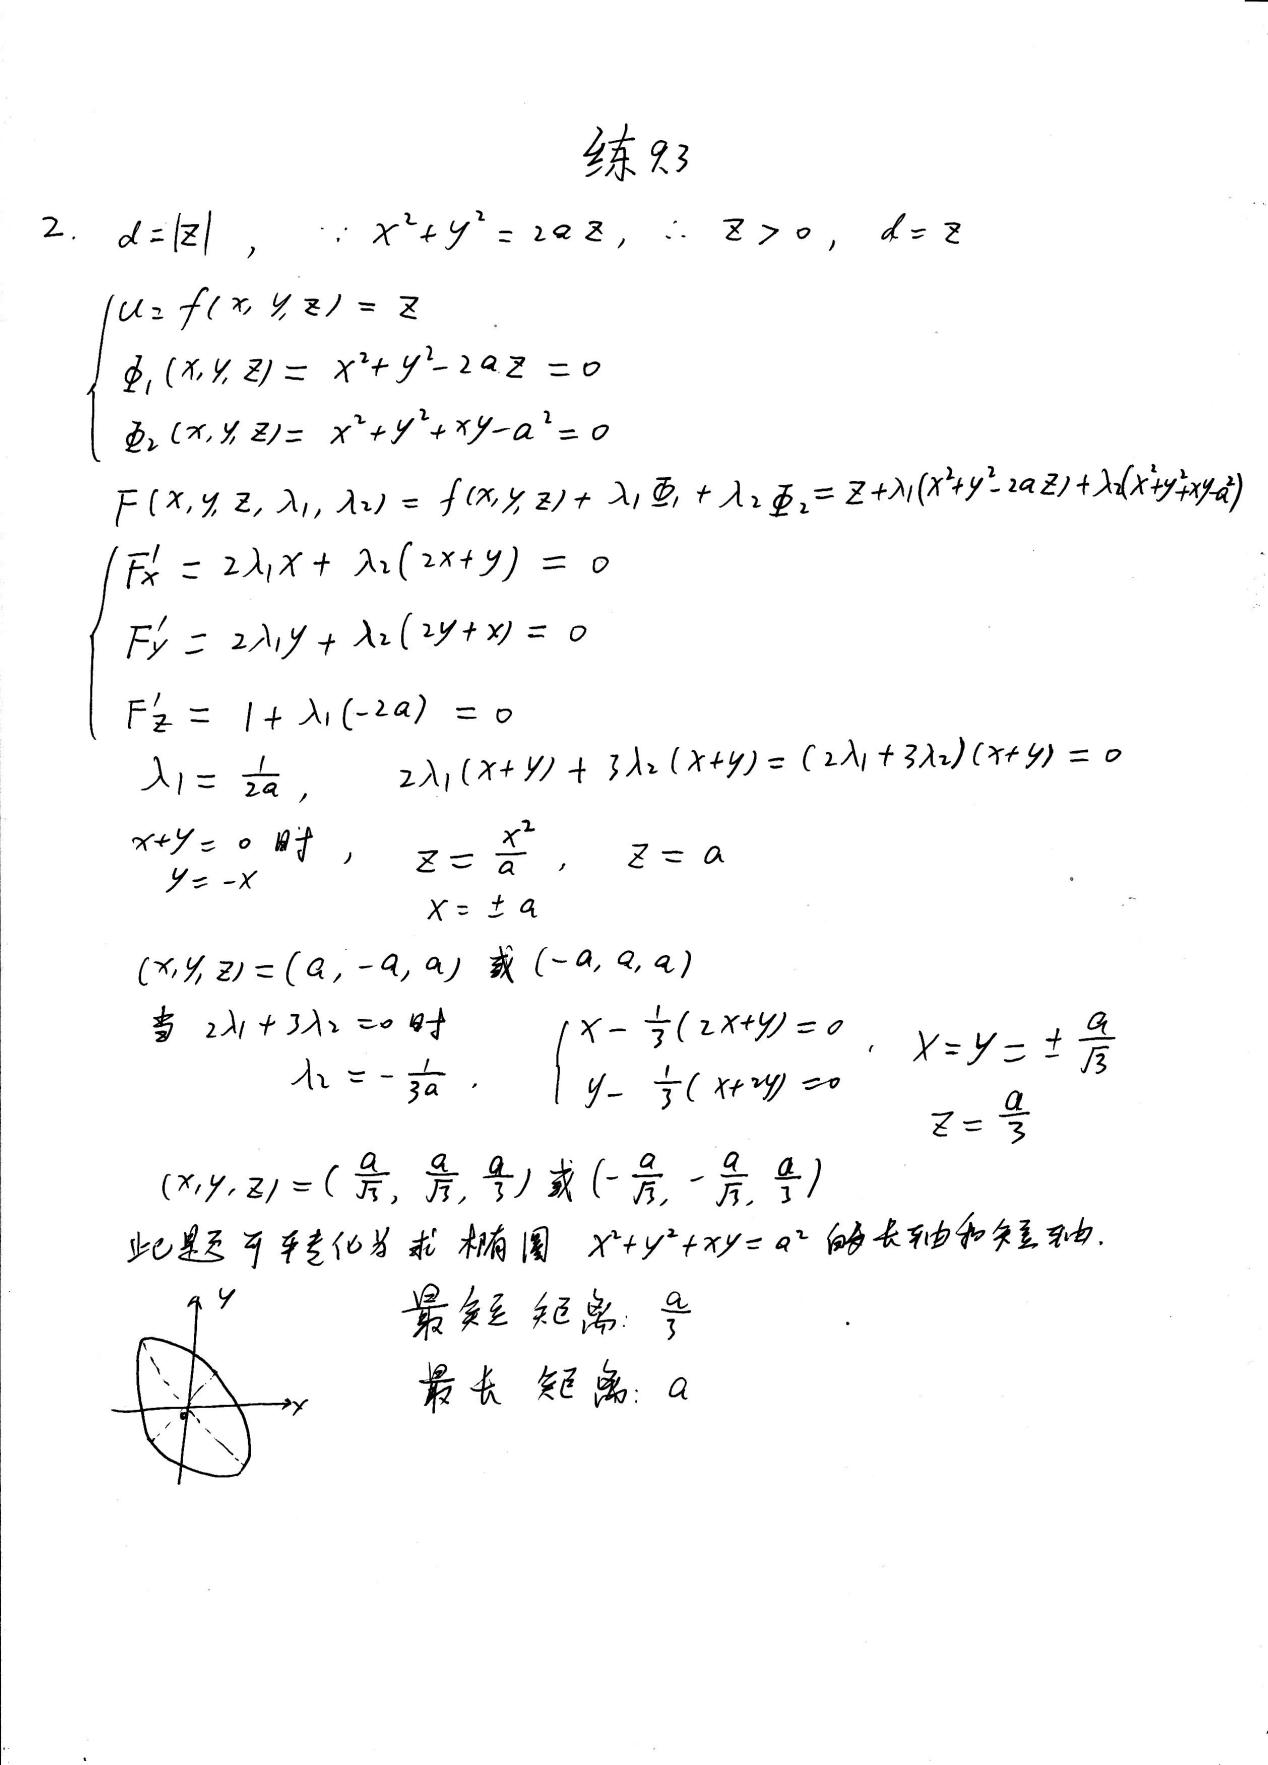 练9.3
2. d=|z|, ∵ x²+y²=2az, ∴ z>0, d=z
u=f(x,y,z)=z
Φ₁(x,y,z)=x²+y²-2az=0
Φ₂(x,y,z)=x²+y²+xy-a²=0
F(x,y,z,λ₁,λ₂)=f(x,y,z)+λ₁Φ₁+λ₂Φ₂=z+λ₁(x²+y²-2az)+λ₂(x²+y²+xy-a²)
F'x=2λ₁x+λ₂(2x+y)=0
F'y=2λ₁y+λ₂(2y+x)=0
F'z=1+λ₁(-2a)=0
λ₁=1/2a, 2λ₁(x+y)+3λ₂(x+y)=(2λ₁+3λ₂)(x+y)=0
x+y=0时, z=x²/a, z=a
y=-x x=±a
(x,y,z)=(a,-a,a)或(-a,a,a)
当2λ₁+3λ₂=0时 x-1/3(2x+y)=0, x=y=±a/√3
λ₂=-1/3a. y-1/3(x+2y)=0 z=a/3
(x,y,z)=(a/√3, a/√3, a/3)或(-a/√3, -a/√3, a/3)
此题可转化为求椭圆x²+y²+xy=a²的长轴和短轴.
y
最短距离: a/3
最长距离: a
x
o